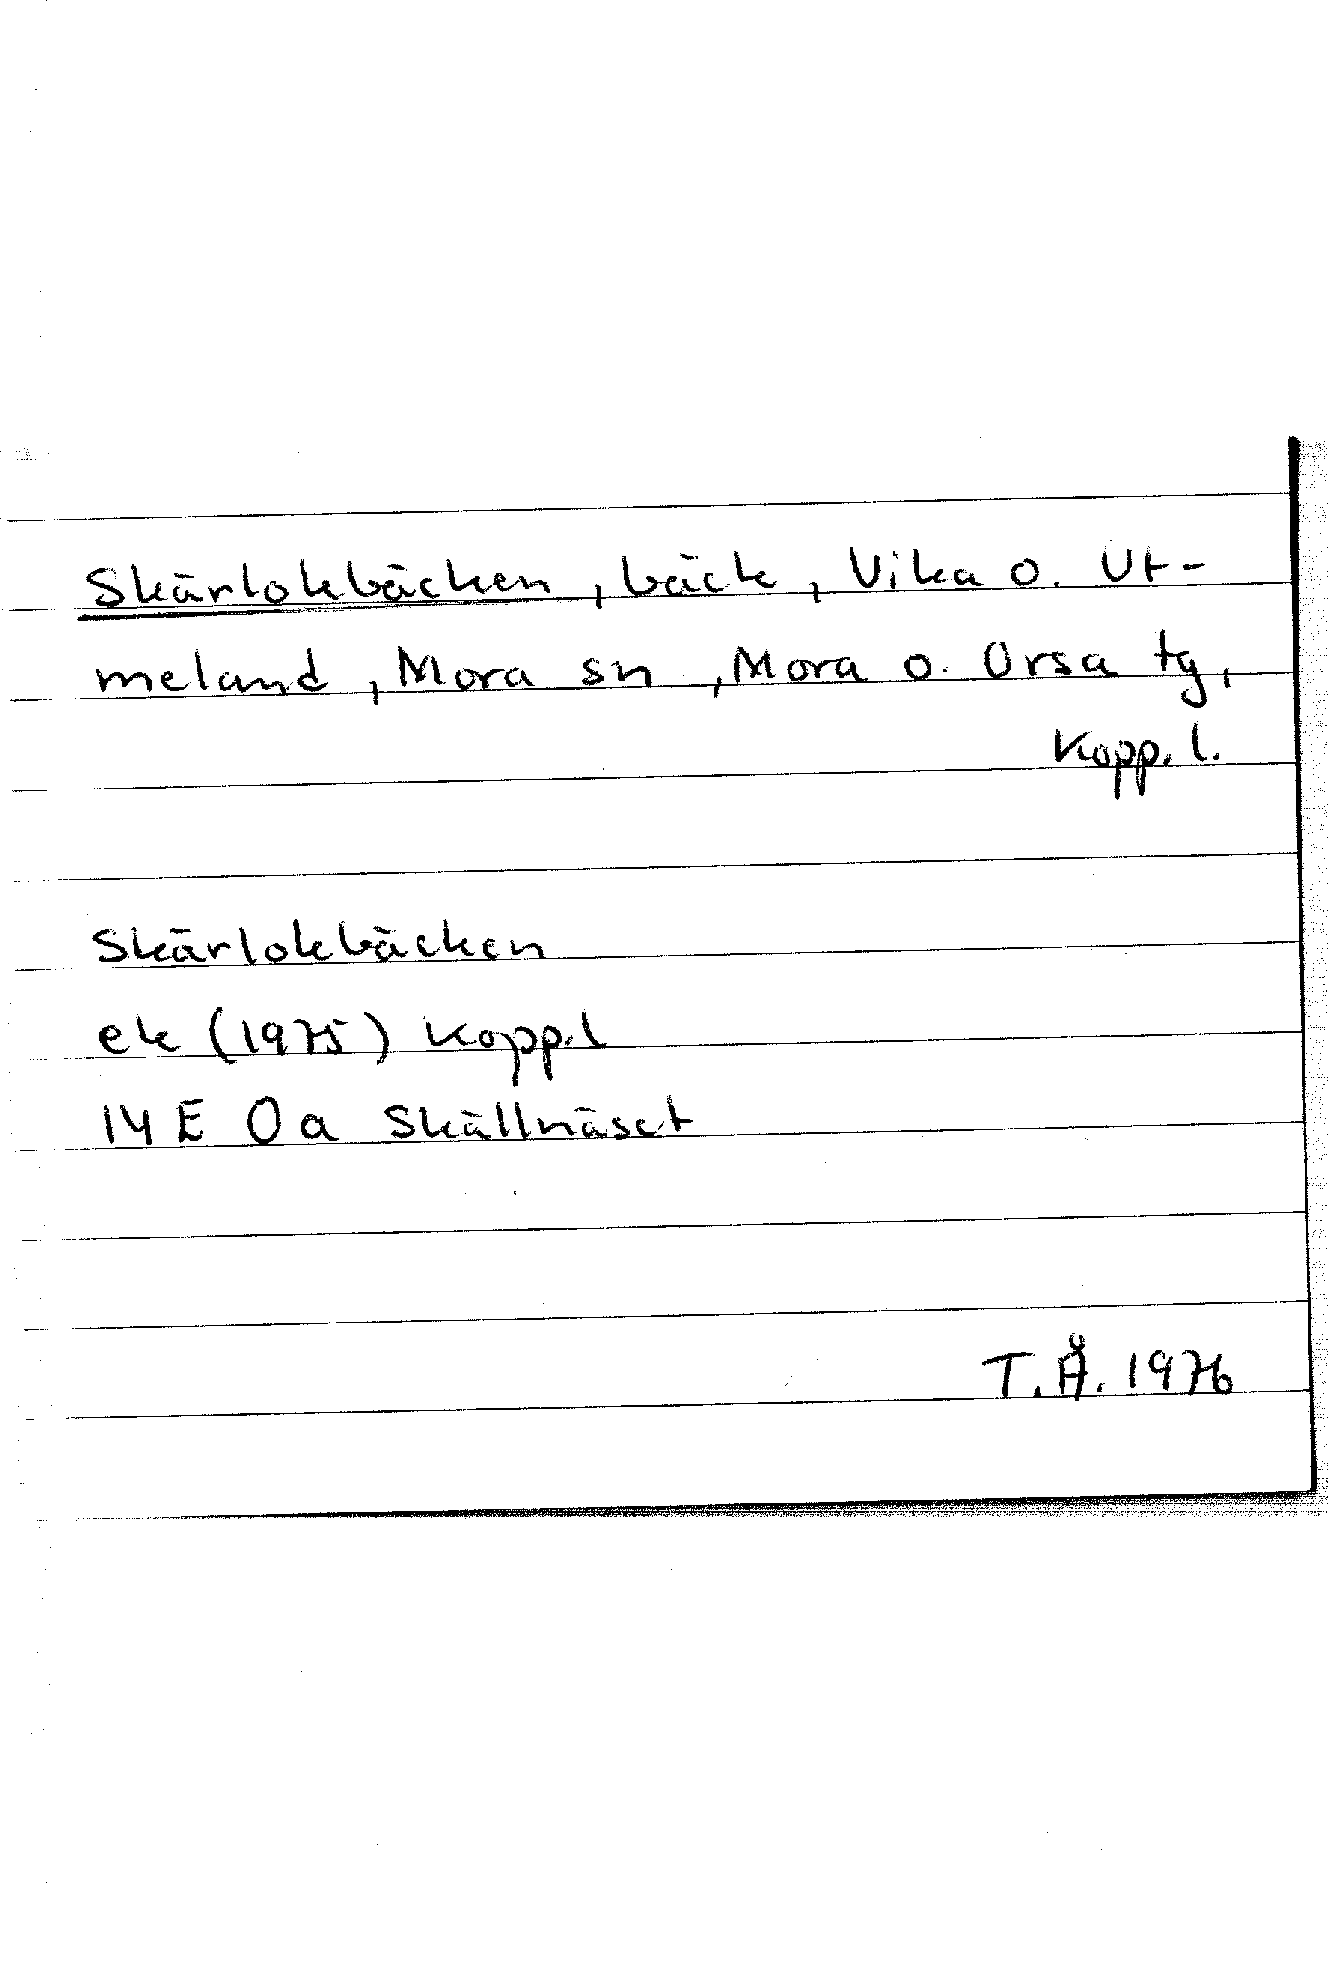 Skärlokbäcken, bäck, Vika o. Ut-
meland, Mora sn, Mora o. Orsa tg,
Kopp. l.
Skärlokbäcken
ek (1975) Kopp.l
14 E 0 a Skällnäset
T.Å. 1976